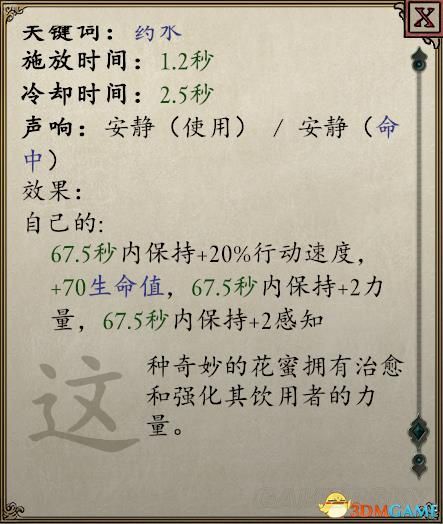 关键词：约水
施放时间：1.2秒
冷却时间：2.5秒
声响：安静（使用） / 安静（命
中）
效果：
自己的:
67.5秒内保持+20%行动速度，
+70生命值，67.5秒内保持+2力
量，67.5秒内保持+2感知
这
种奇妙的花蜜拥有治愈
和强化其饮用者的力
量。
3DMGAME